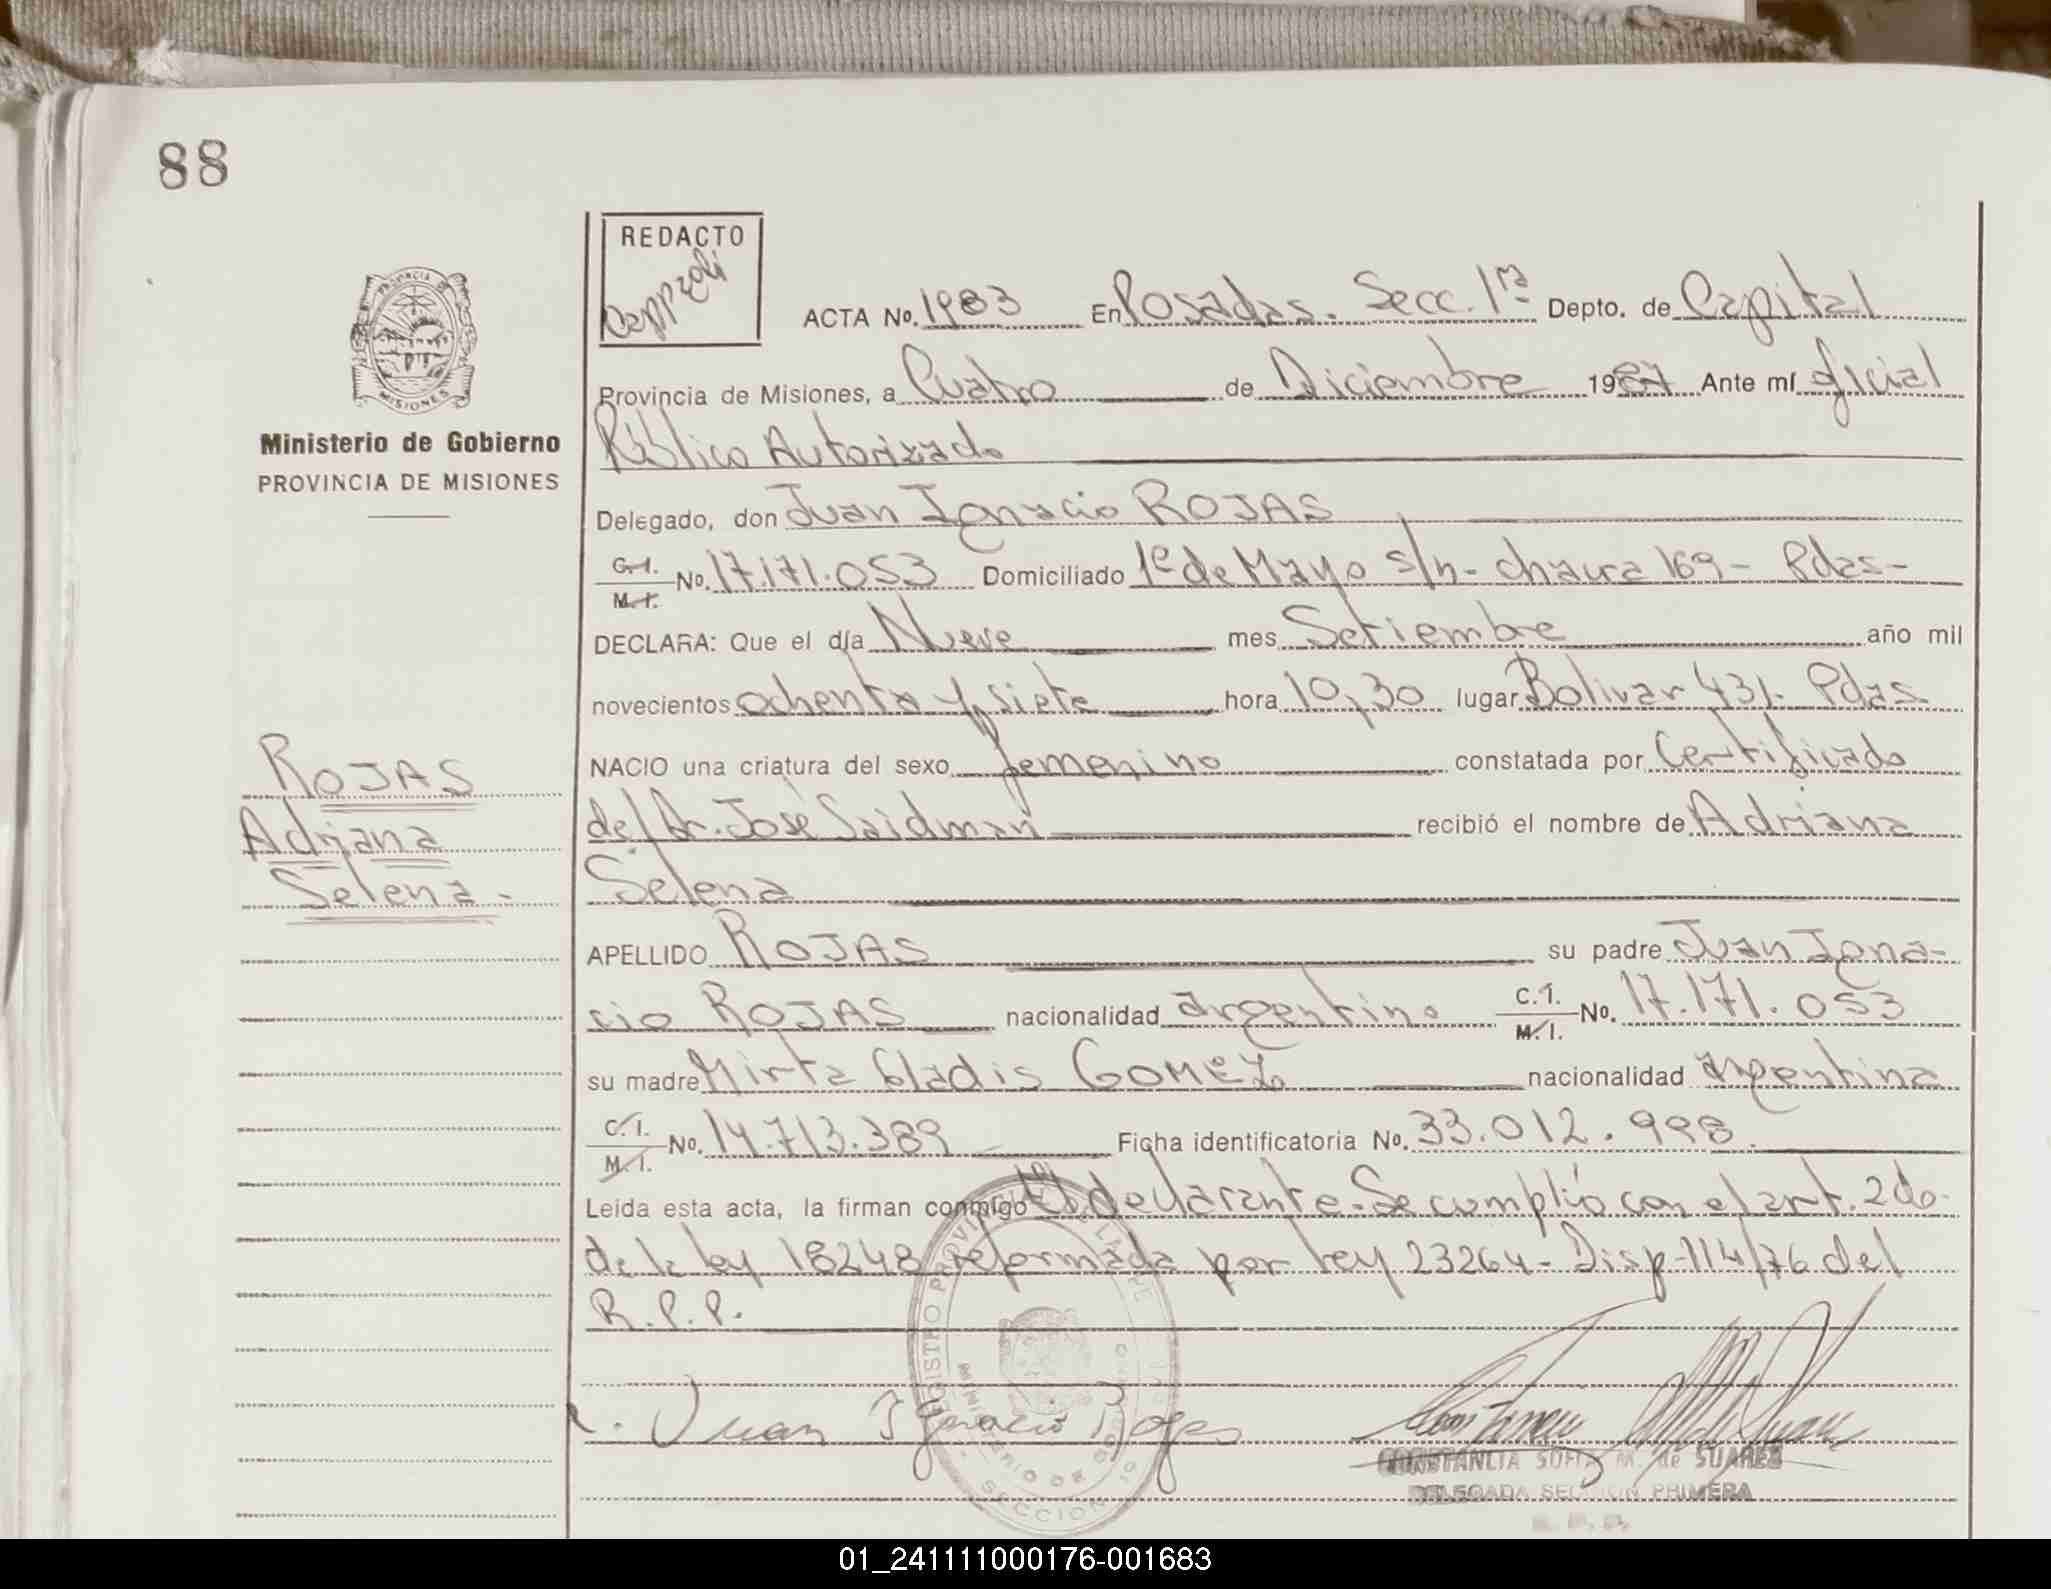 88
REDACTO
PROVINCIA
MISIONES
Ministerio de Gobierno
PROVINCIA DE MISIONES
ACTA No. 1983 En Posadas. Secc. 1ra Depto. de Capital
Provincia de Misiones, a Cuatro de Diciembre 1987 Ante mí Oficial
Público Autorizado
Delegado, don Juan Ignacio ROJAS
C.I. M.I. No. 17.171.053 Domiciliado 1º de Mayo s/n - chacra 169 - Pdas -
DECLARA: Que el día Nueve mes Setiembre año mil
novecientos ochenta y siete hora 10,30 lugar Bolivar 431. Pdas
NACIO una criatura del sexo femenino constatada por Certificado
del Dr. José Saidman recibió el nombre de Adriana
Selena
ROJAS
Adriana
Selena -
APELLIDO ROJAS su padre Juan Igna-
cio ROJAS nacionalidad argentino C.I. M.I. No. 17.171.053
su madre Mirta Gladis GOMEZ nacionalidad argentina
C.I. M.I. No. 14.713.389 Ficha identificatoria No. 33.012.998.
Leida esta acta, la firman conmigo el declarante - Se cumplió con el art. 2do.
de la ley 18248 reformada por ley 23264 - Disp - 114/76 del
R.P.P.
Juan Ignacio Rojas
CONSTANCIA SOFIA M. de SUAREZ
DELEGADA SECCION PRIMERA
R. P. P.
01_241111000176-001683